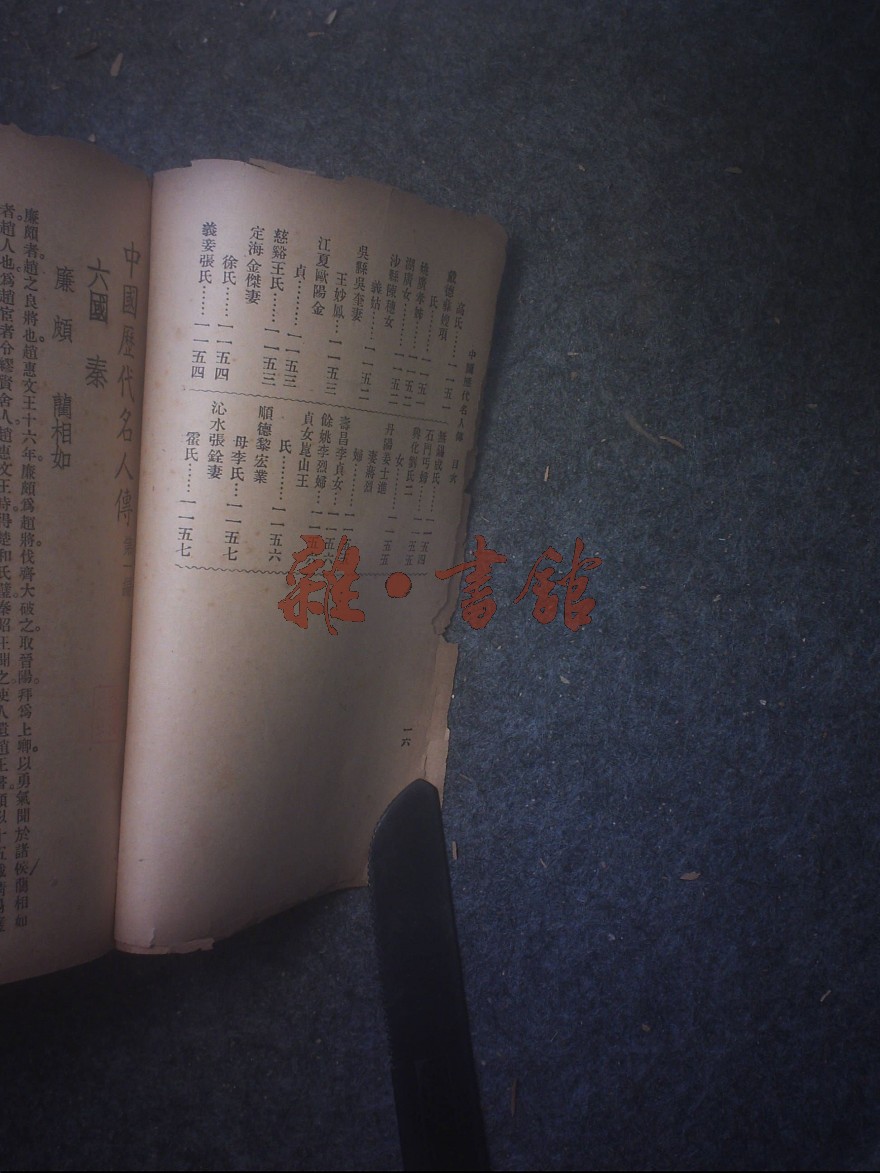 中國歷代名人傳 目次
高氏……一一五一
氏……一一五一
湖廣女……一一五二
沙縣陳穗女
義姑……一一五二
吳縣吳奎妻
王妙鳳……一一五三
江夏歐陽金
貞……一一五三
慈谿王氏……一一五三
定海金傑妻
徐氏……一一五四
義妾張氏……一一五四
石門丐婦……一一五四
女……一一五五
丹陽姜士進
妻蔣烈
婦
壽昌李貞女
餘姚李烈婦……一一五六
貞女崑山王
氏……一一五六
順德黎宏業
母李氏……一一五七
沁水張銓妻
霍氏……一一五七
一六
雜·書館
中國歷代名人傳 第一編
六國 秦
廉頗 藺相如
廉頗者。趙之良將也。趙惠文王十六年。廉頗爲趙將。伐齊。大破之。取晉陽。拜爲上卿。以勇氣聞於諸侯。藺相如
者。趙人也。爲趙宦者令繆賢舍人。趙惠文王時。得楚和氏璧。秦昭王聞之。使人遺趙王書。願以十五